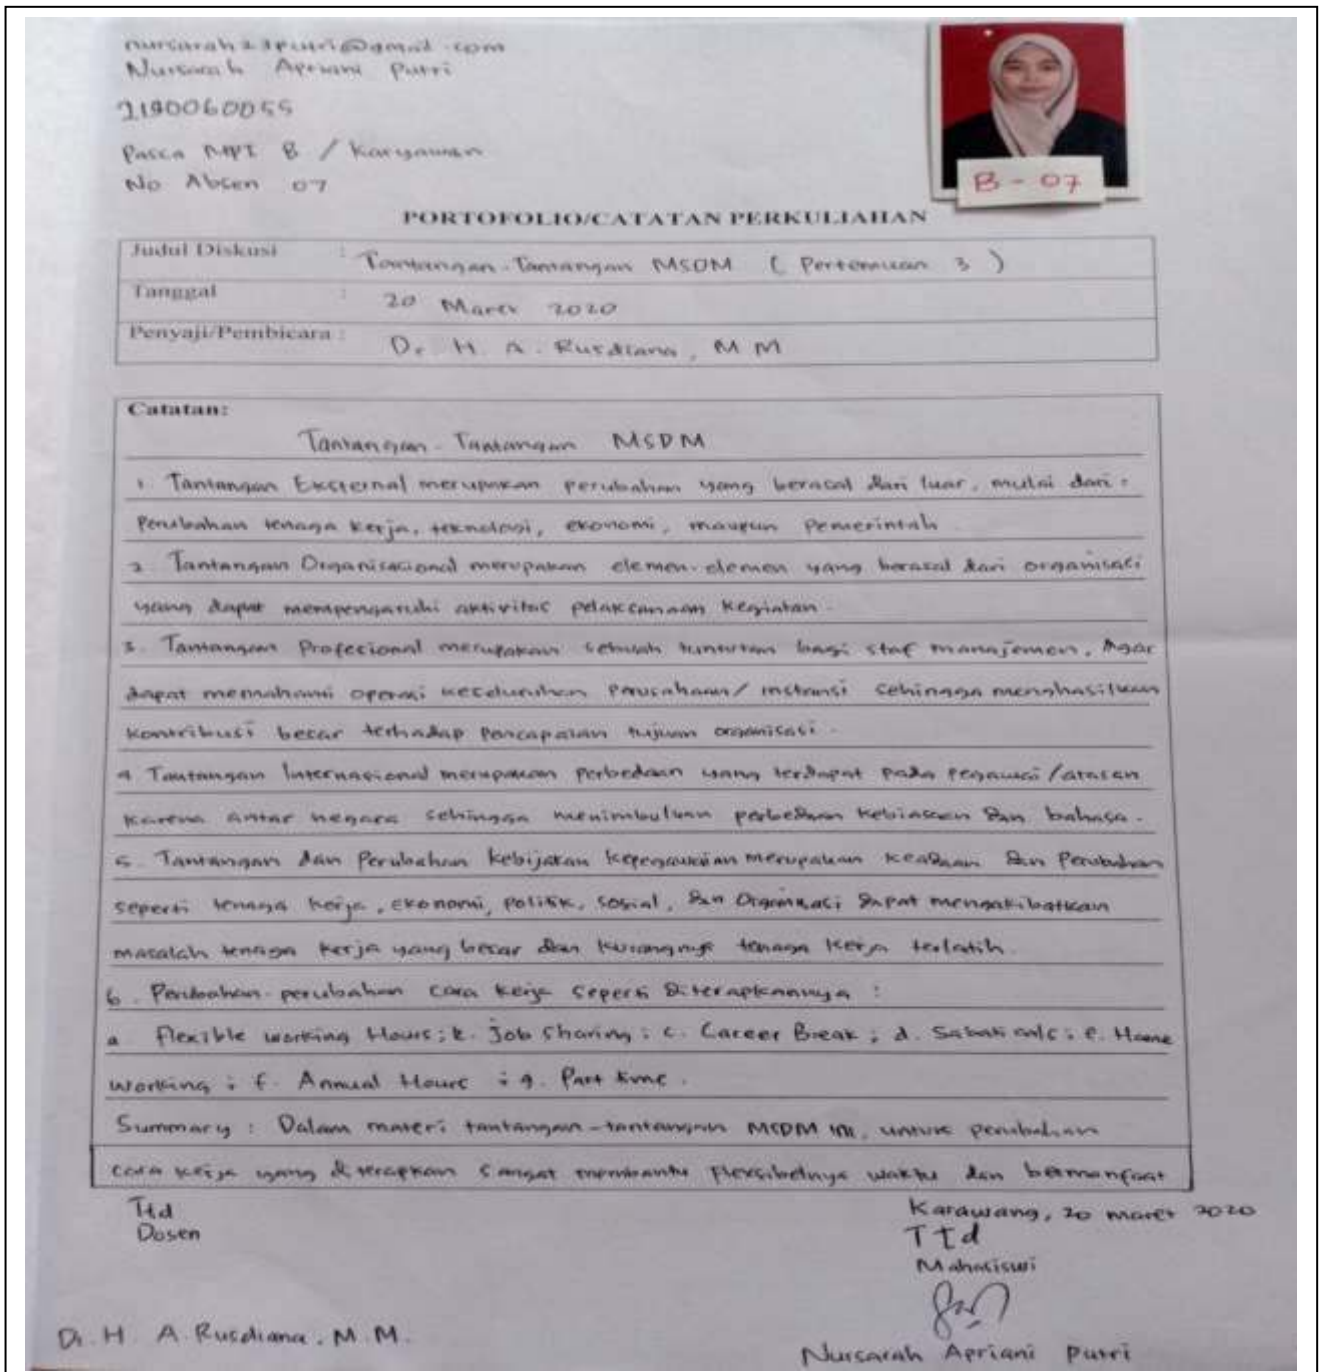 nursarah23putri@gmail.com
Nursarah Apriani Putri
2190060055
Pasca MPI B / Karyawan
No Absen 07
B-07
PORTOFOLIO/CATATAN PERKULIAHAN
Judul Diskusi : Tantangan-Tantangan MSDM ( Pertemuan 3 )
Tanggal : 20 Maret 2020
Penyaji/Pembicara : Dr. H. A. Rusdiana, M M
Catatan:
Tantangan-Tantangan MSDM
1. Tantangan Eksternal merupakan perubahan yang berasal dari luar, mulai dari :
Perubahan tenaga kerja, teknologi, ekonomi, maupun Pemerintah
2. Tantangan Organisasional merupakan elemen-elemen yang berasal dari organisasi
yang dapat mempengaruhi aktivitas pelaksanaan kegiatan.
3. Tantangan Profesional merupakan sebuah tuntutan bagi staf manajemen, Agar
dapat memahami operasi keseluruhan Perusahaan/ instansi sehingga menghasilkan
kontribusi besar terhadap pencapaian tujuan organisasi.
4 Tantangan Internasional merupakan perbedaan yang terdapat pada pegawai/atasan
karena antar negara sehingga menimbulkan perbedaan kebiasaan dan bahasa.
5. Tantangan dan Perubahan kebijakan kepegawaian merupakan keadaan dan Perubahan
seperti tenaga kerja, ekonomi, politik, sosial, dan Organisasi dapat mengakibatkan
masalah tenaga kerja yang besar dan kurangnya tenaga kerja terlatih.
6. Perubahan-perubahan cara kerja seperti diterapkannya :
a. Flexible working Hours; b. Job Sharing; c. Career Break; d. Sabaticals; e. Home
Working; f. Annual Hours; g. Part time.
Summary : Dalam materi tantangan-tantangan MSDM ini, untuk perubahan
cara kerja yang diterapkan sangat membantu flexsibelnya waktu dan bermanfaat
Ttd
Dosen
Karawang, 20 maret 2020
Ttd
Mahasiswi
Dr. H. A. Rusdiana. M.M.
Nursarah Apriani Putri